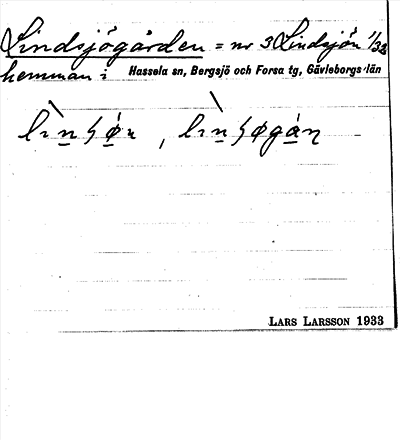 Lindsjögården = nr 3 Lindsjön 1/32
hemman i Hassela sn, Bergsjö och Forsa tg, Gävleborgs län
LARS LARSSON 1933